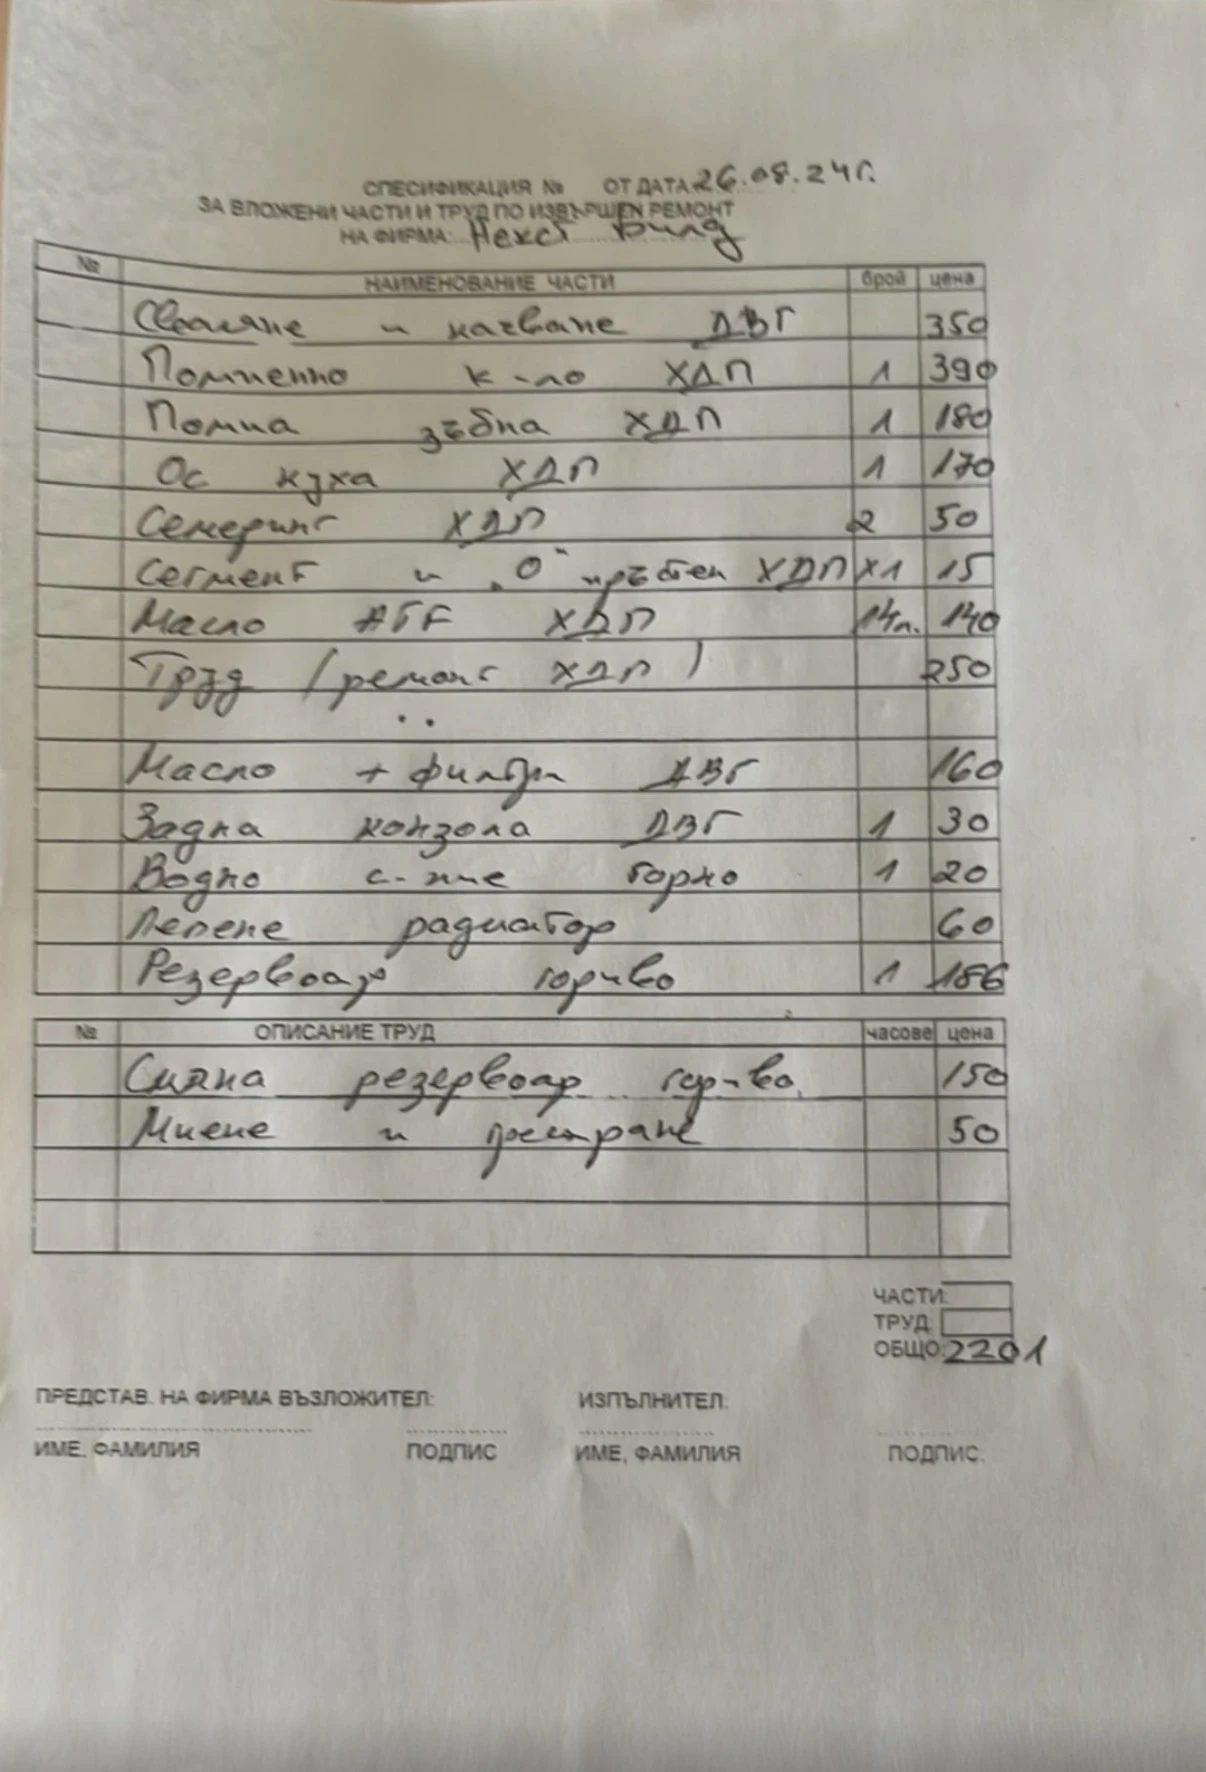 СПЕСИФИКАЦИЯ № ОТ ДАТА 26.08.24г.
ЗА ВЛОЖЕНИ ЧАСТИ И ТРУД ПО ИЗВЪРШЕN РЕМОНТ
НА ФИРМА: Некст Билд
№ НАИМЕНОВАНИЕ ЧАСТИ брой цена
Сваляне и качване ДВГ 350
Помпенно к-ло ХДП 1 390
Помпа зъбна ХДП 1 180
Ос куха ХДП 1 170
Семеринг ХДП 2 50
Сегмент и "О" пръстен ХДП х1 15
Масло ATF ХДП 14л. 140
Труд (ремонт ХДП) 250
Масло + филтри ДВГ 160
Задна конзола ДВГ 1 30
Водно с-ние горно 1 20
Лепене радиатор 60
Резервоар гориво 1 186
№ ОПИСАНИЕ ТРУД часове цена
Смяна резервоар гориво 150
Миене и 50
ЧАСТИ:
ТРУД:
ОБЩО: 2201
ПРЕДСТАВ. НА ФИРМА ВЪЗЛОЖИТЕЛ: ИЗПЪЛНИТЕЛ:
ИМЕ, ФАМИЛИЯ ПОДПИС ИМЕ, ФАМИЛИЯ ПОДПИС.